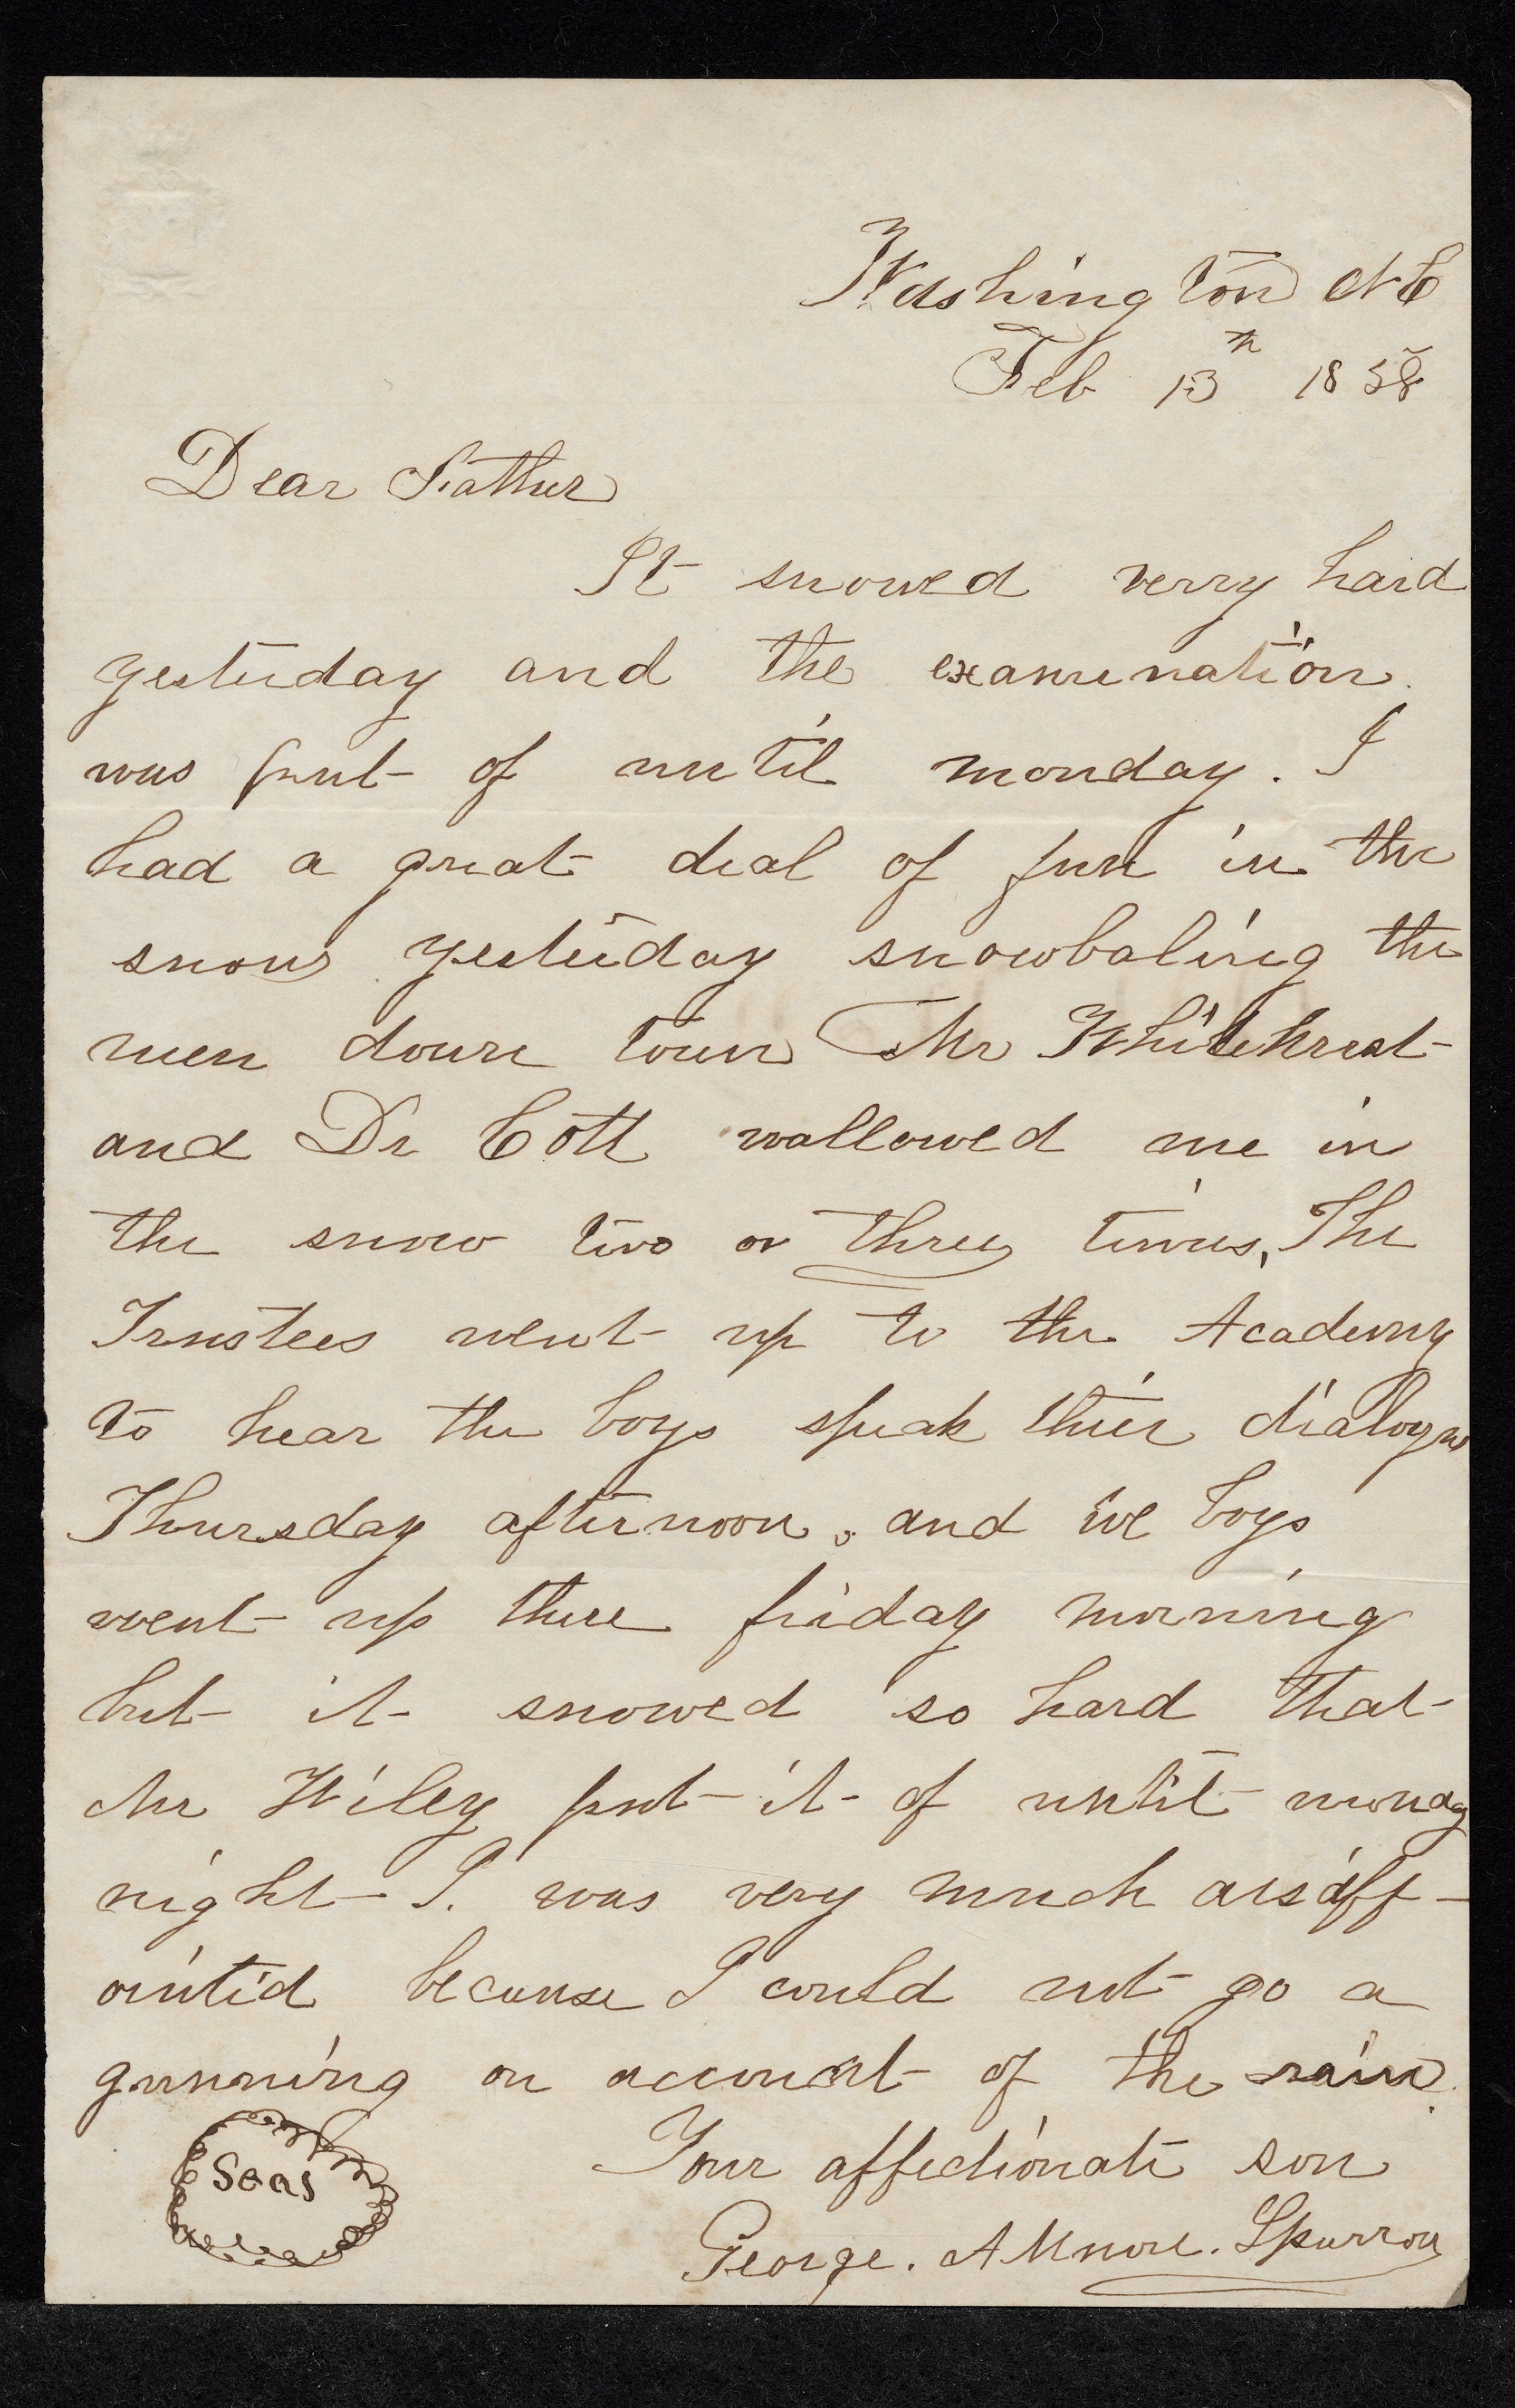 Washington N C
Feb 13th 1858
Dear Father
It snowed verry hard
yesterday and the examination
was put of until monday. I
had a great deal of fun in the
snow yesterday snowbaling the
men down town Mr Whitehurst
and Dr Cott wallowed me in
the snow two or three times, The
Trustees went up to the Academy
to hear the boys speak thier dialogu
Thursday afternoon, and we boys
went up there friday morning
but it snowed so hard that
Mr Wiley put it of until monday
night I. was very much disapp-
ointed because I could not go a
gunning on account of the rain.
Your affectionate son
George. Sparrow